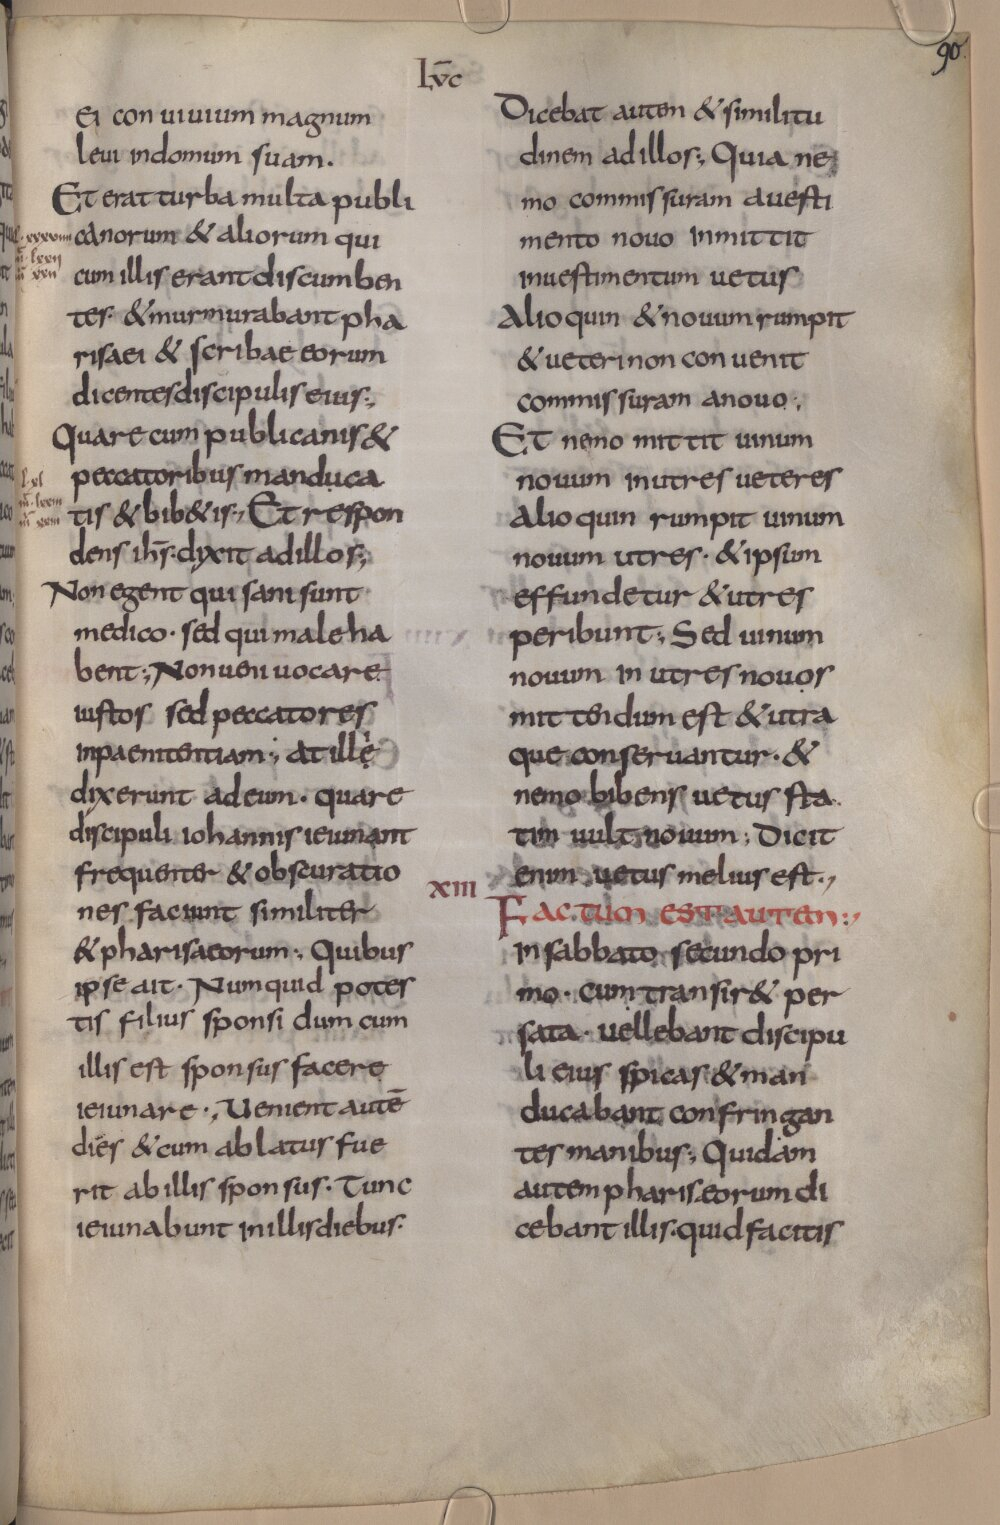 90
Lvc
ei con uiuium magnum
leui indomum suam.
Et erat turba multa publi
canorum & aliorum qui
cum illis erant discumben
tes· & murmurabant pha
risaei & scribae eorum
dicentes discipulis eius;
Quare cum publicanis &
peccatoribus manduca
tis & bib&is; Et respon
dens ihs̄· dixit ad illos;
Non egent qui sani sunt
medico· sed qui male ha
bent; Non ueni uocare
iustos sed peccatores
inpaenitentiam; at ille
dixerunt ad eum· quare
discipuli iohannis ieiunant
frequenter & obscuratio
nes faciunt similiter
& pharisaeorum; Quibus
ipse ait· Numquid potes
tis filius sponsi dum cum
illis est sponsus facere
ieiunare·, Uenient autē
dies & cum ablatus fue
rit ab illis sponsus· Tunc
ieiunabunt in illis diebus·
Dicebat autem & similitu
dinem ad illos; Quia ne
mo commissuram auesti
mento nouo inmittit
inuestimentum uetus
Alioquin & nouum rumpit
& ueteri non conuenit
commissuram anouo;
Et nemo mittit uinum
nouum inutres ueteres
Alioquin rumpit uinum
nouum utres· & ipsum
effundetur & utres
peribunt; Sed uinum
nouum in utres nouos
mittendum est & utra
que conseruantur· &
nemo bibens uetus sta
tim uult nouum; Dicit
enim uetus melius est·,
XIII
Factum est autem:,
in sabbato secundo pri
mo· cum transir& per
sata· uellebant discipu
li eius spicas & man
ducabant confringan
tes manibus; Quidam
autem phariseorum di
cebant illis· quid facitis